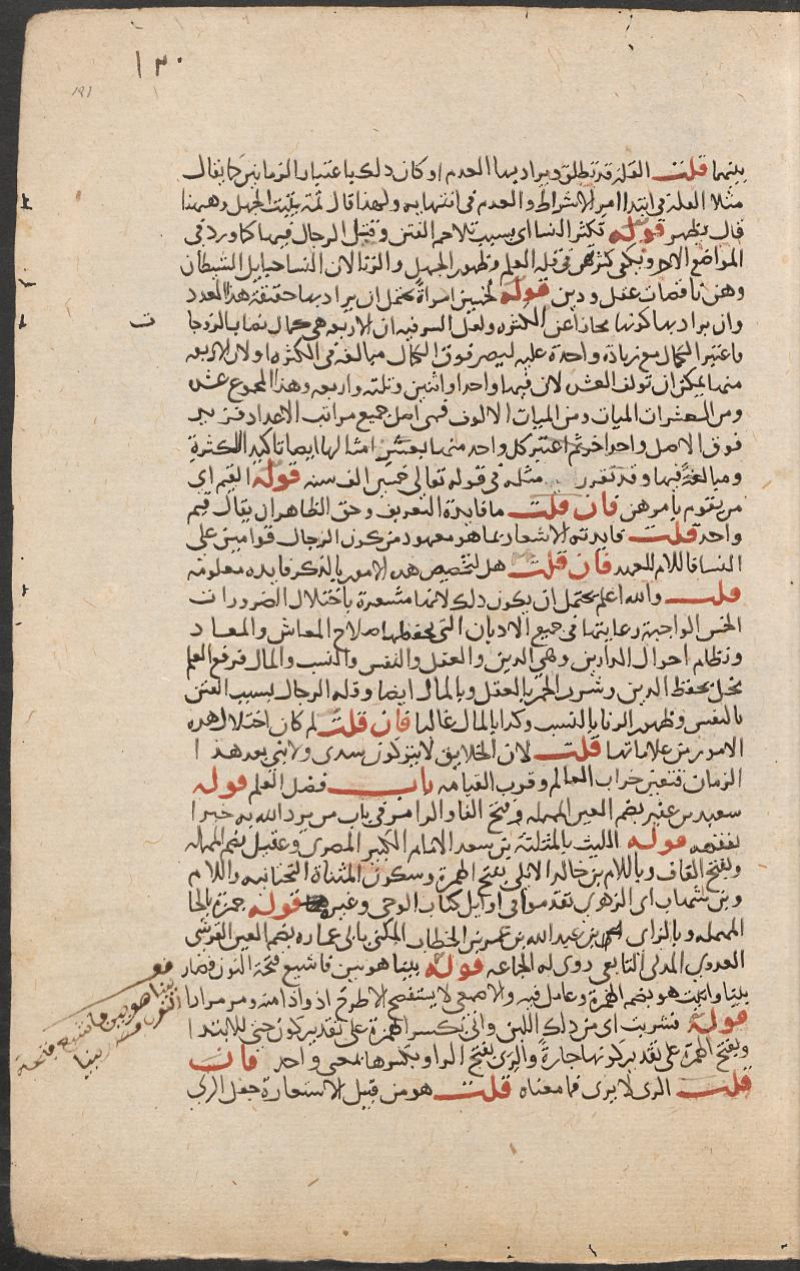 ١٣٠
191
بينهما قلت القلة قد تطلق ويراد بها العدم او كان ذلك باعتبار الزمانين كما يقال
مثلا القلة في ابتدا امر الاشراط والعدم في انتهايه ولهذا قال ثمة يثبت الجهل وههنا
قال يظهر قوله تكثر النسا اي بسبب تلاحم الفتن وقتل الرجال فيها كما ورد في
المواضع الاخر وبكثرتهن في قلة العلم وظهور الجهل والزنا لان النسا حبايل الشيطان
وهن ناقصات عقل ودين قوله لخمسين امراة يحتمل ان يراد بها حقيقة هذا العدد
وان يراد بها كونها مجازا عن الكثرة ولعل السر فيه ان الاربعة هي كمال نصاب الزوجات
فاعتبر الكمال مع زيادة واحدة عليه ليصير فوق الكمال مبالغة في الكثرة او لان الاربعة
منها يمكن ان تولف العشرة لان فيها واحدا واثنين وثلثة واربعة وهذا المجموع عشرة
ومن العشرات الميات ومن الميات الالوف فهي اصل جميع مراتب الاعداد فزيد
فوق الاصل واحد اخر ثم اعتبر كل واحد منها بعشر امثالها ايضا تاكيدا للكثرة
ومبالغة فيها وقد تقرر مثله في قوله تعالى خمسين الف سنة قوله القيم اي
من يقوم بامرهن فان قلت ما فايدة التعريف وحق الظاهر ان يقال قيم
واحد قلت فايدته الاشعار بما هو معهود من كون الرجال قوامين على
النسا فاللام للعهد فان قلت هل لتخصيص هذه الامور بالذكر فايدة معلومة
قلت والله اعلم يحتمل ان يكون ذلك لانها مشعرة باختلال الضرورات
الخمس الواجبة رعايتها في جميع الاديان التي بحفظها صلاح المعاش والمعاد
ونظام احوال الدارين وهي الدين والعقل والنفس والنسب والمال فرفع العلم
مخل بحفظ الدين وشرب الخمر بالعقل وبالمال ايضا وقلة الرجال بسبب الفتن
بالنفس وظهور الزنا بالنسب وكذا بالمال غالبا فان قلت لم كان اختلال هذه
الامور من علاماتها قلت لان الخلايق لا يتركون سدى ولا نبي بعد هذا
الزمان فتعين خراب العالم وقرب القيامة باب فضل العلم قوله
سعيد بن عفير بضم العين المهملة وفتح الفا والرا مر في باب من يرد الله به خيرا
يفقهه قوله الليث بالمثلثة بن سعد الامام الكبير المصري وعقيل بضم المهملة
وبفتح القاف وباللام بن خالد الايلي بفتح الهمزة وسكون المثناة التحتانية واللام
وبن شهاب اي الزهري تقدموا في اوايل كتاب الوحي وغيره قوله حمزة بالحا
المهملة وبالزاي بن عبد الله بن عمر بن الخطاب المكنى بابي عمارة بضم العين القرشي
العدوي المدني التابعي روى له الجماعة قوله بينا هو بين فاشبع فتحة النون فصار
بينا واتيت هو بضم الهمزة وعامل فيه والاصمعي لا يستفصح الا طرح اذ واذا منه ومر مرارا
قوله فشربت اي من ذلك اللبن واني بكسر الهمزة على تقدير كون حتى للابتدا
وبفتح الهمزة على تقدير كونها جارة والري بفتح الرا وبكسرها بمعنى واحد فان
قلت الري لا يرى فما معناه قلت هو من قبيل الاستعارة جعل الري
ت
بينا هو بين فاشبع فتحة
النون فصار بينا